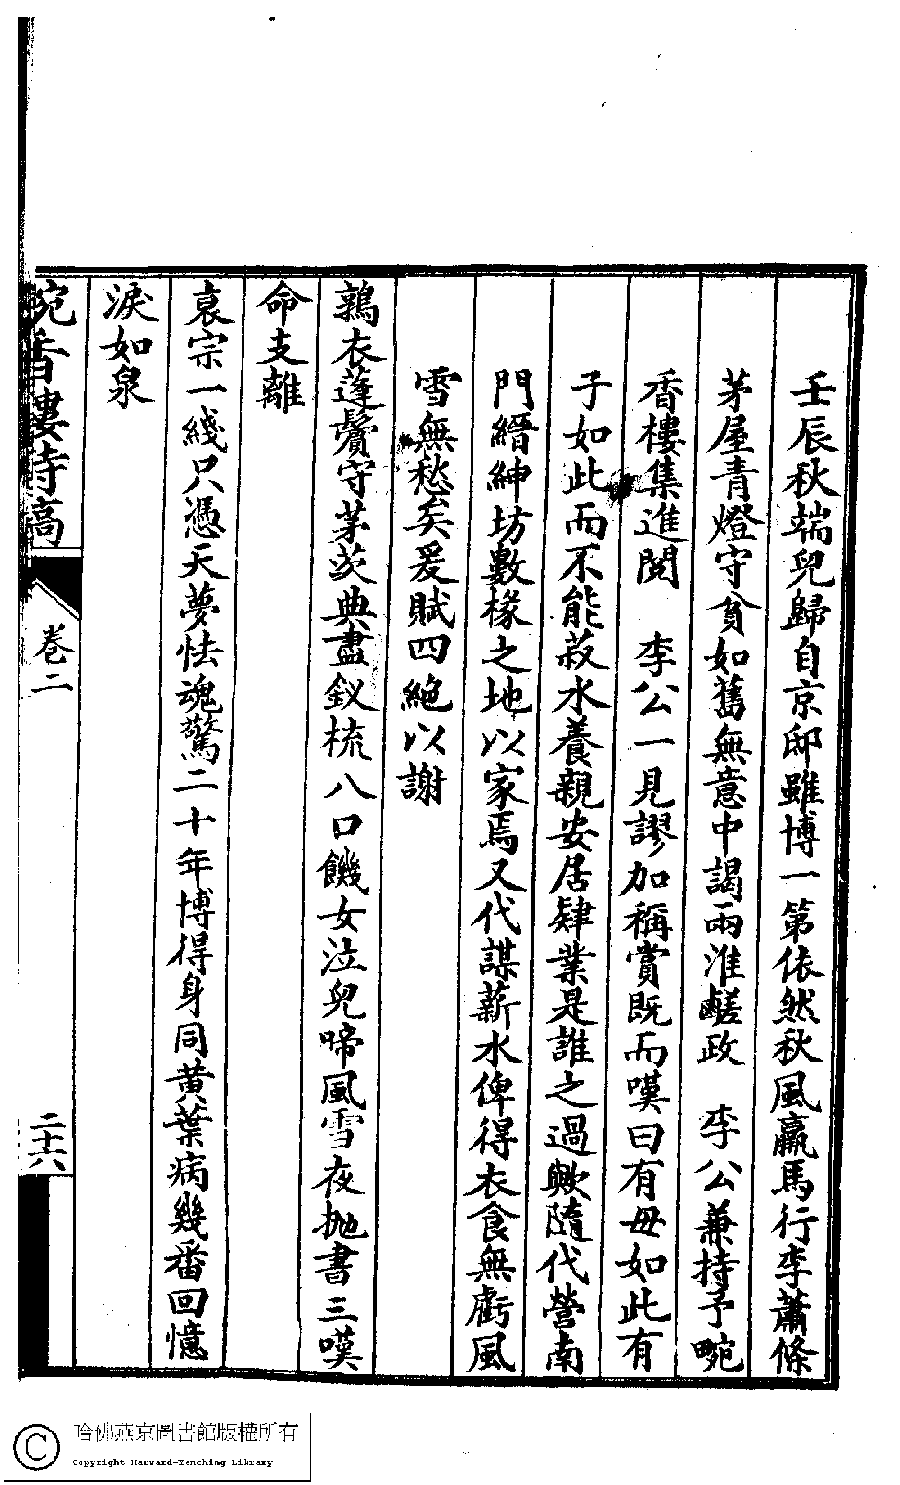 壬辰秋端兒歸自京邸雖博一第依然秋風羸馬行李蕭條
茅屋青燈守貧如舊無意中謁兩淮鹺政　李公兼持予畹
香樓集進閱　李公一見謬加稱賞既而嘆曰有母如此有
子如此而不能菽水養親安居肄業是誰之過歟隨代營南
門縉紳坊數椽之地以家焉又代謀薪水俾得衣食無虧風
雪無愁矣爰賦四絕以謝
鶉衣蓬鬢守茅茨典盡釵梳八口饑女泣兒啼風雪夜拋書三嘆
命支離
衰宗一綫只憑天夢怯魂驚二十年博得身同黄葉病幾番回憶
淚如泉
畹香樓詩稿
卷二
二十六
哈佛燕京圖書館版權所有
Copyright Harvard-Yenching Library